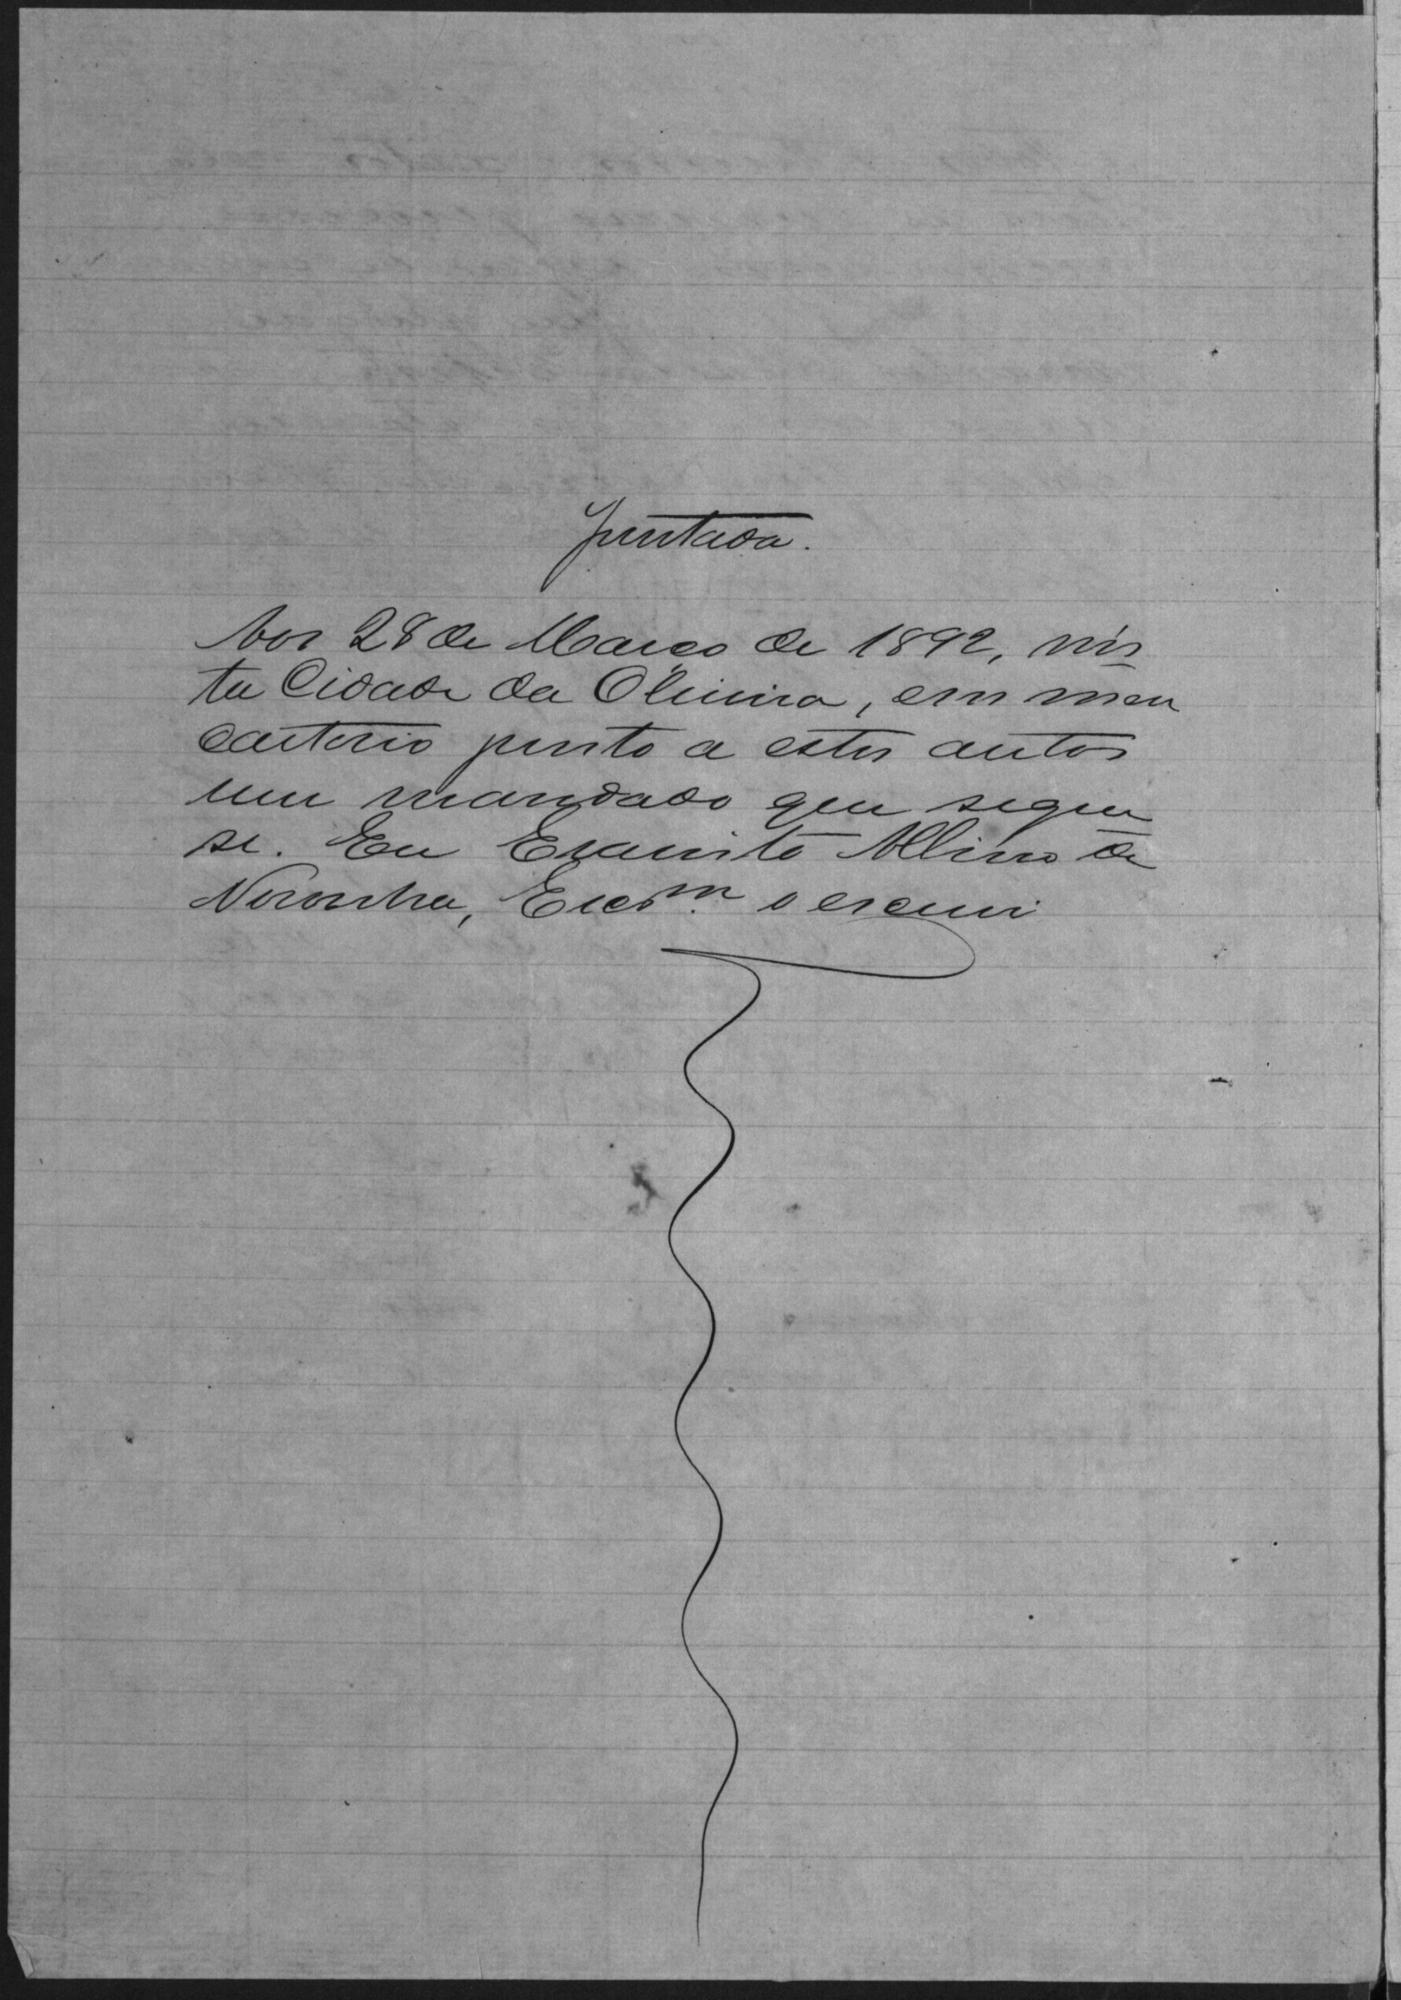 Juntada.
Aos 28 de Março de 1892, nes-
ta Cidade da Oliveira, em meu
Cartorio junto a estes autos
um mandado que segue
se. Eu Evaristo Albino de
Noronha, Escm. o escrevi